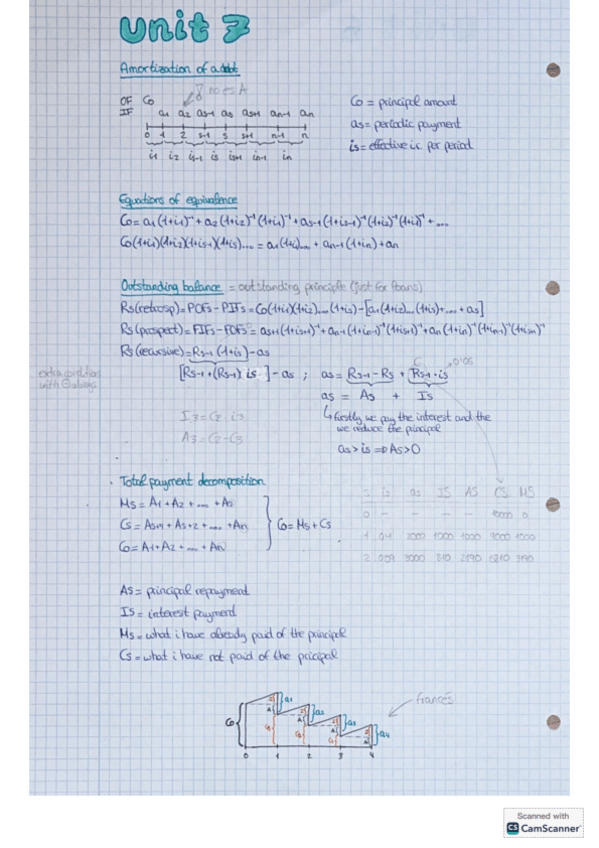 Unit 7
Amortization of a debt
no es A
OF C0
IF a1 a2 as-1 as as+1 an-1 an
0 1 2 s-1 s s+1 n-1 n
i1 i2 is-1 is is+1 in-1 in
C0 = principal amount
as = periodic payment
is = effective i.r. per period
Equations of equivalence
C0 = a1(1+i1)⁻¹ + a2(1+i2)⁻¹(1+i1)⁻¹ + as-1(1+is-1)⁻¹(1+i2)⁻¹(1+i1)⁻¹ + ....
C0(1+i1)(1+i2)(1+is-1)(1+is).... = a1(1+i2).... + an-1(1+in) + an
Outstanding balance = outstanding principle (just for loans)
Rs(retrosp) = POFs - PIFs = C0(1+i1)(1+i2)....(1+is) - [a1(1+i2)...(1+is)+....+as]
Rs(prospect) = FIFs - FOFs = as+1(1+is+1)⁻¹ + an-1(1+in-1)⁻¹(1+is+1)⁻¹ + an(1+in)⁻¹(1+in-1)⁻¹(1+is+1)⁻¹
Rs(recursive) = Rs-1(1+is) - as
[Rs-1 + (Rs-1) is] - as ; as = Rs-1 - Rs + Rs-1 · is
as = As + Is
↳ firstly we pay the interest and the
we reduce the principal
I3 = C2 · i3
A3 = C2 - C3
as > is ⇒ As > 0
Total payment decomposition
Ms = A1 + A2 + .... + As
Cs = As+1 + As+2 + .... + An
C0 = A1 + A2 + .... + An
C0 = Ms + Cs
s is as IS AS CS MS
0 - - - -
As = principal repayment
Is = interest payment
Ms = what i have already paid of the principal
Cs = what i have not paid of the pricipal
francés
C0 a1 a2 a3 a4
0 1 2 3 4
Scanned with
CS CamScanner